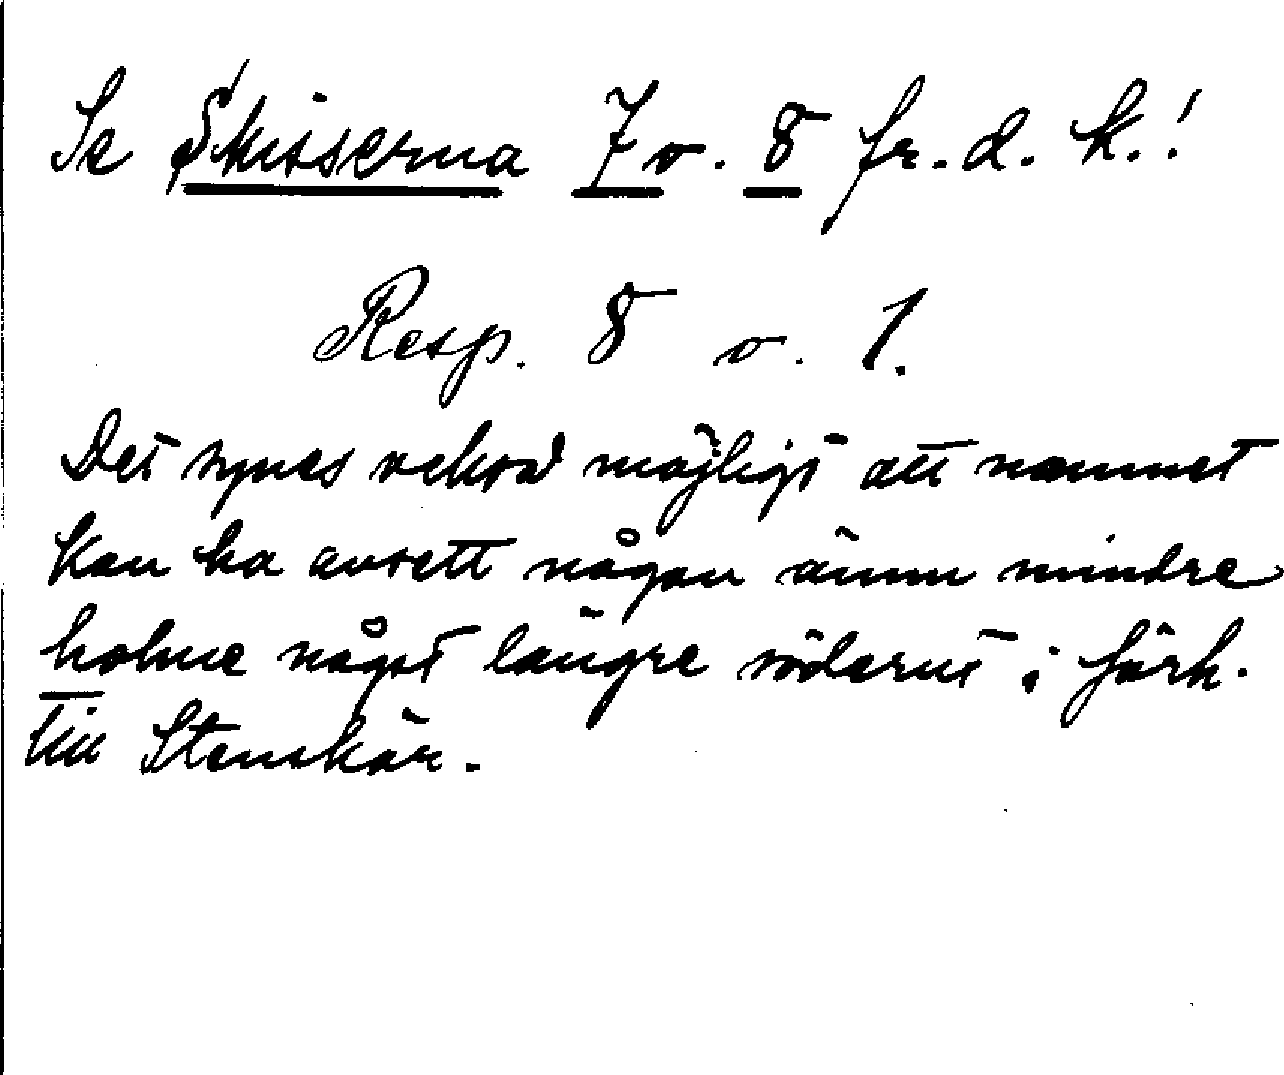 Se Skisserna 7 o. 8 fr. d. k.!
Resp. 8 o. 1.
Det synes också möjligt att namnet
kan ha avsett någon ännu mindre
holme något längre söderut i förh.
till Stenskär.